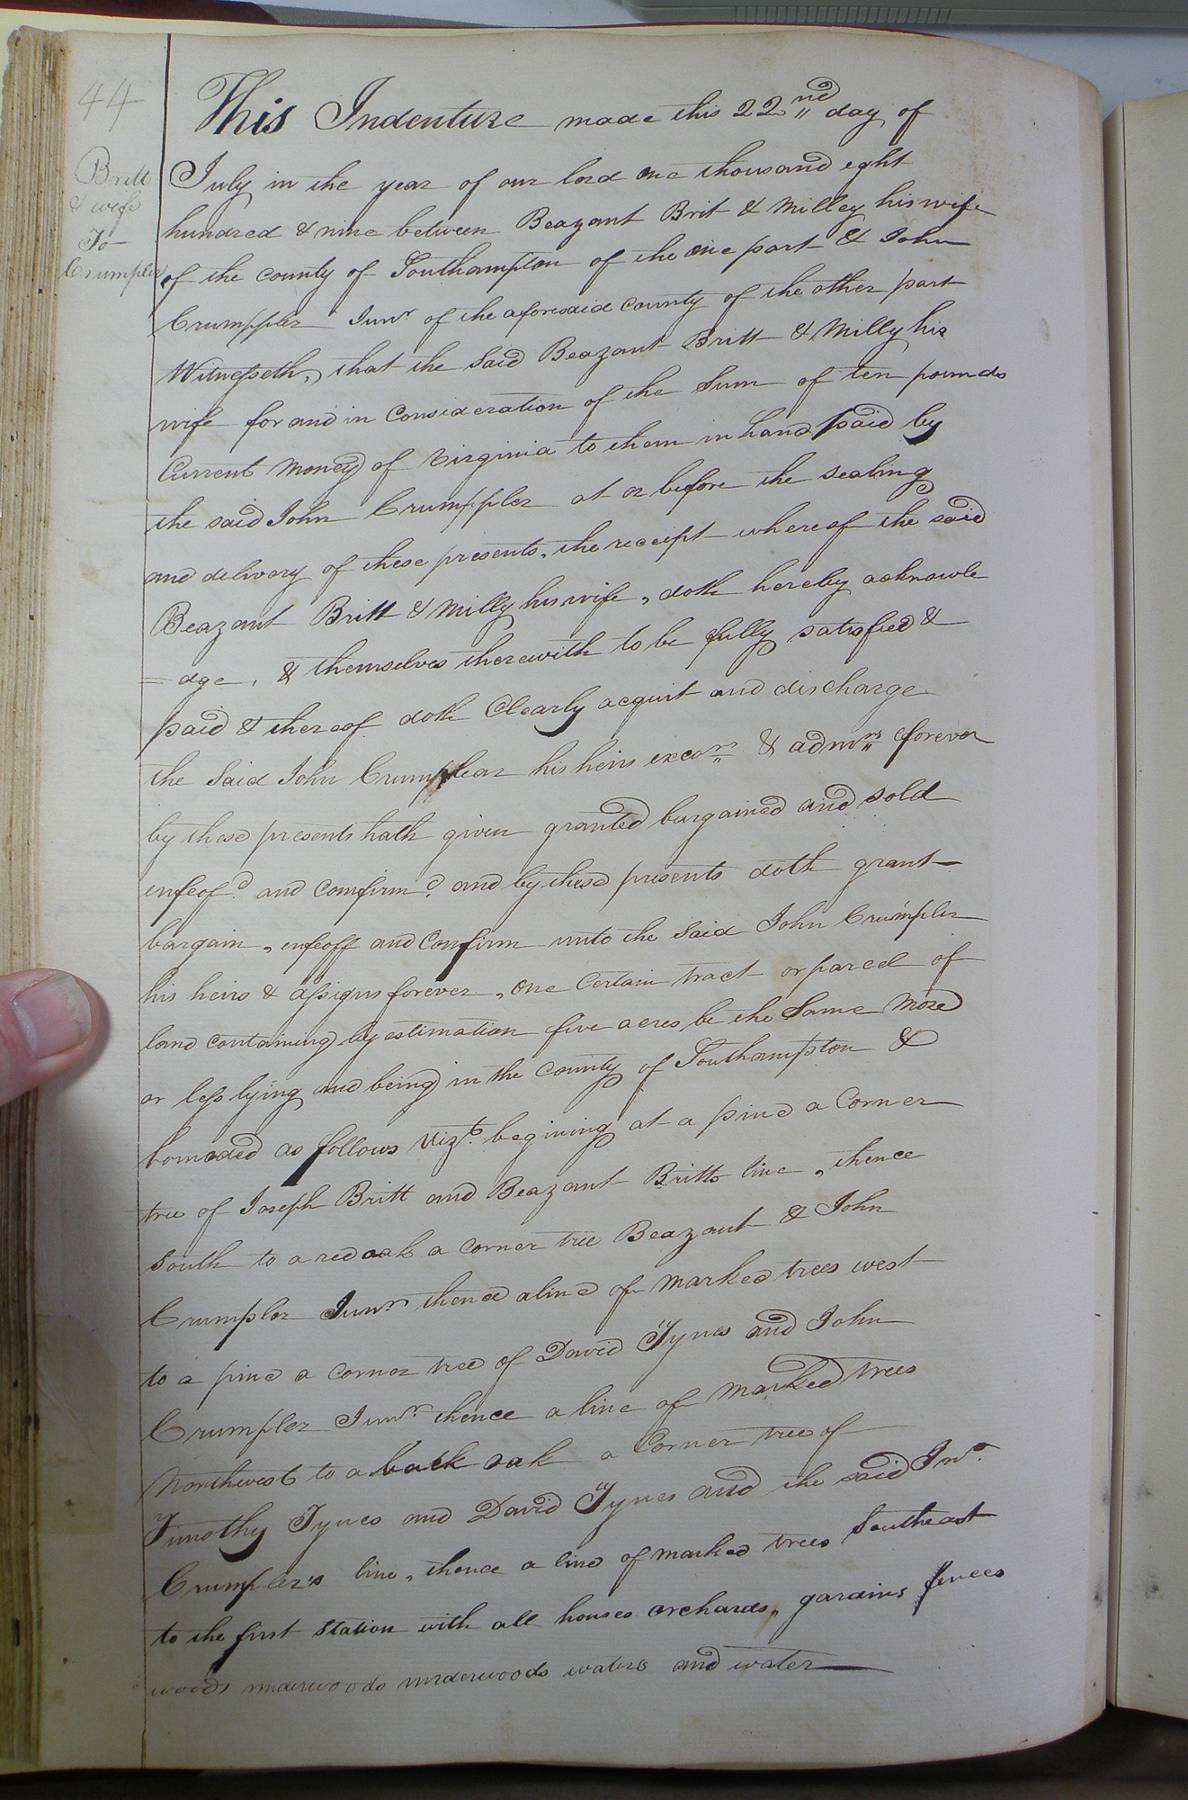 44
Britt
& wife
To
Crumpler
This Indenture made this 22nd day of
July in the year of our lord one thousand eght
hundred & nine between Beazant Brit & Milley his wife
of the county of Southampton of the one part & John
Crumppler Junr of the aforesaid county of the other part
Witnesseth, that the said Beazant Britt & Milly his
wife for and in Consideration of the Sum of ten pounds
Current Money of Virginia to them in hand paid by
the said John Crumppler at or before the sealing
and delivery of these presents, the receipt whereof the said
Beazant Britt & Milly his wife, doth hereby acknowle
= dge, & themselves therewith to be fully satisfied &
paid & thereof doth Clearly acquit and discharge
the Said John Crumplear his heirs excors & admrs forever
by these presents hath given granted bargained and sold
enfeofd and comfirmd and by these presents doth grant
bargain, enfeoff and Comfirm unto the Said John Crumpler
his heirs & assigns forever, one Certain tract or parcel of
land containing by estimation five acres be the Same More
or less lying and being in the County of Southampton &
bounded as follows Vizt. begining at a pine a Corner
tree of Joseph Britt and Beazant Britts line, thence
South to a red oak a corner tree Beazant & John
Crumpler Junr thence a line of marked trees west
to a pine a corner tree of David Tynes and John
Crumpler Junr. thence a line of marked trees
Northwest to a back oak a Corner tree of
Timothy Tynes and David Tynes and the said Jnr.
Crumpler's line, thence a line of marked trees Southeast
to the first Station with all houses orchards, gardins fences
woods underwoods underwoods waters and water